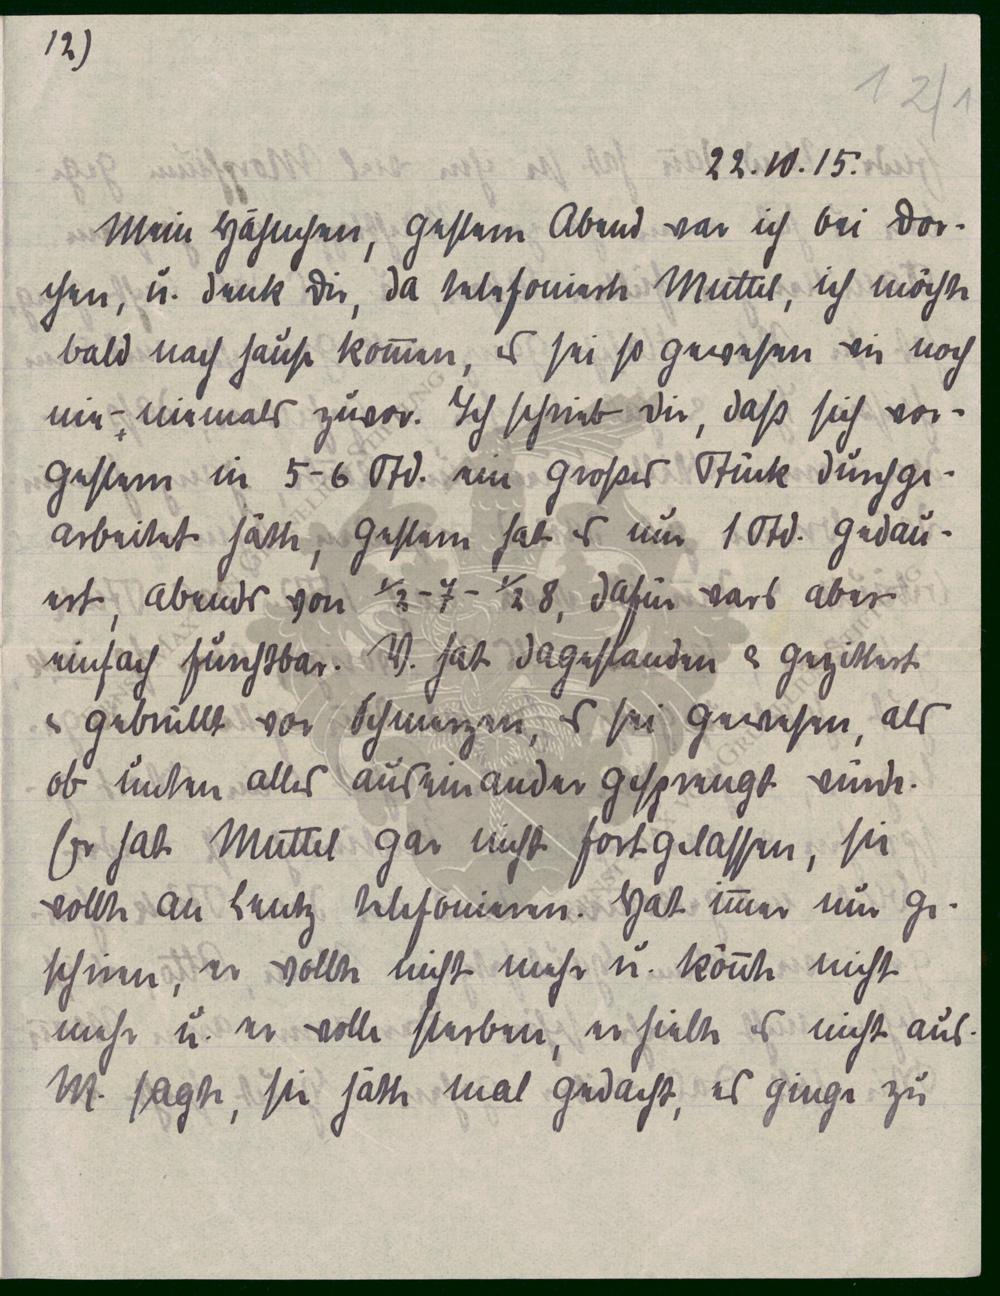 12)
12/1
22.10.15.
Mein Hähnchen, gestern Abend war ich bei Dor-
chen, u. denk Dir, da telefonierte Muttel, ich möchte
bald nach hause kom̅en, es sei so gewesen wie noch
nie-, niemals zuvor. Ich schrieb Dir, daß sich vor-
gestern in 5-6 Std. ein großes Stück durchge-
arbeitet hätte, gestern hat es nur 1 Std. gedau-
ert, abends von ½-7-½8, dafür wars aber
einfach furchtbar. V. hat dagestanden & gezittert
& gebrüllt vor Schmerzen, es sei gewesen, als
ob unten alles auseinander gesprengt würde.
Er hat Muttel gar nicht fortgelassen, sie
wollte an Lentz telefonieren. Hat im̅er nur ge-
schrien, er wollte nicht mehr u. kön̅te nicht
mehr u. er wolle sterben, er hielte es nicht aus.
M. sagte, sie hätte mal gedacht, es ginge zu